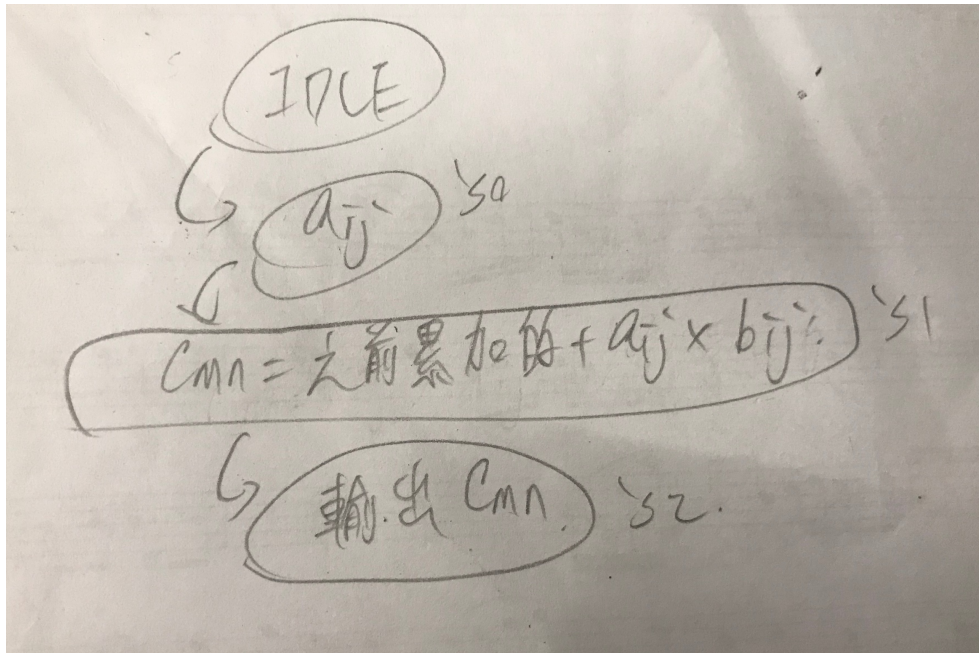 IDLE
aij s0
Cmn = 之前累加的 + aij × bij s1
輸出 Cmn s2